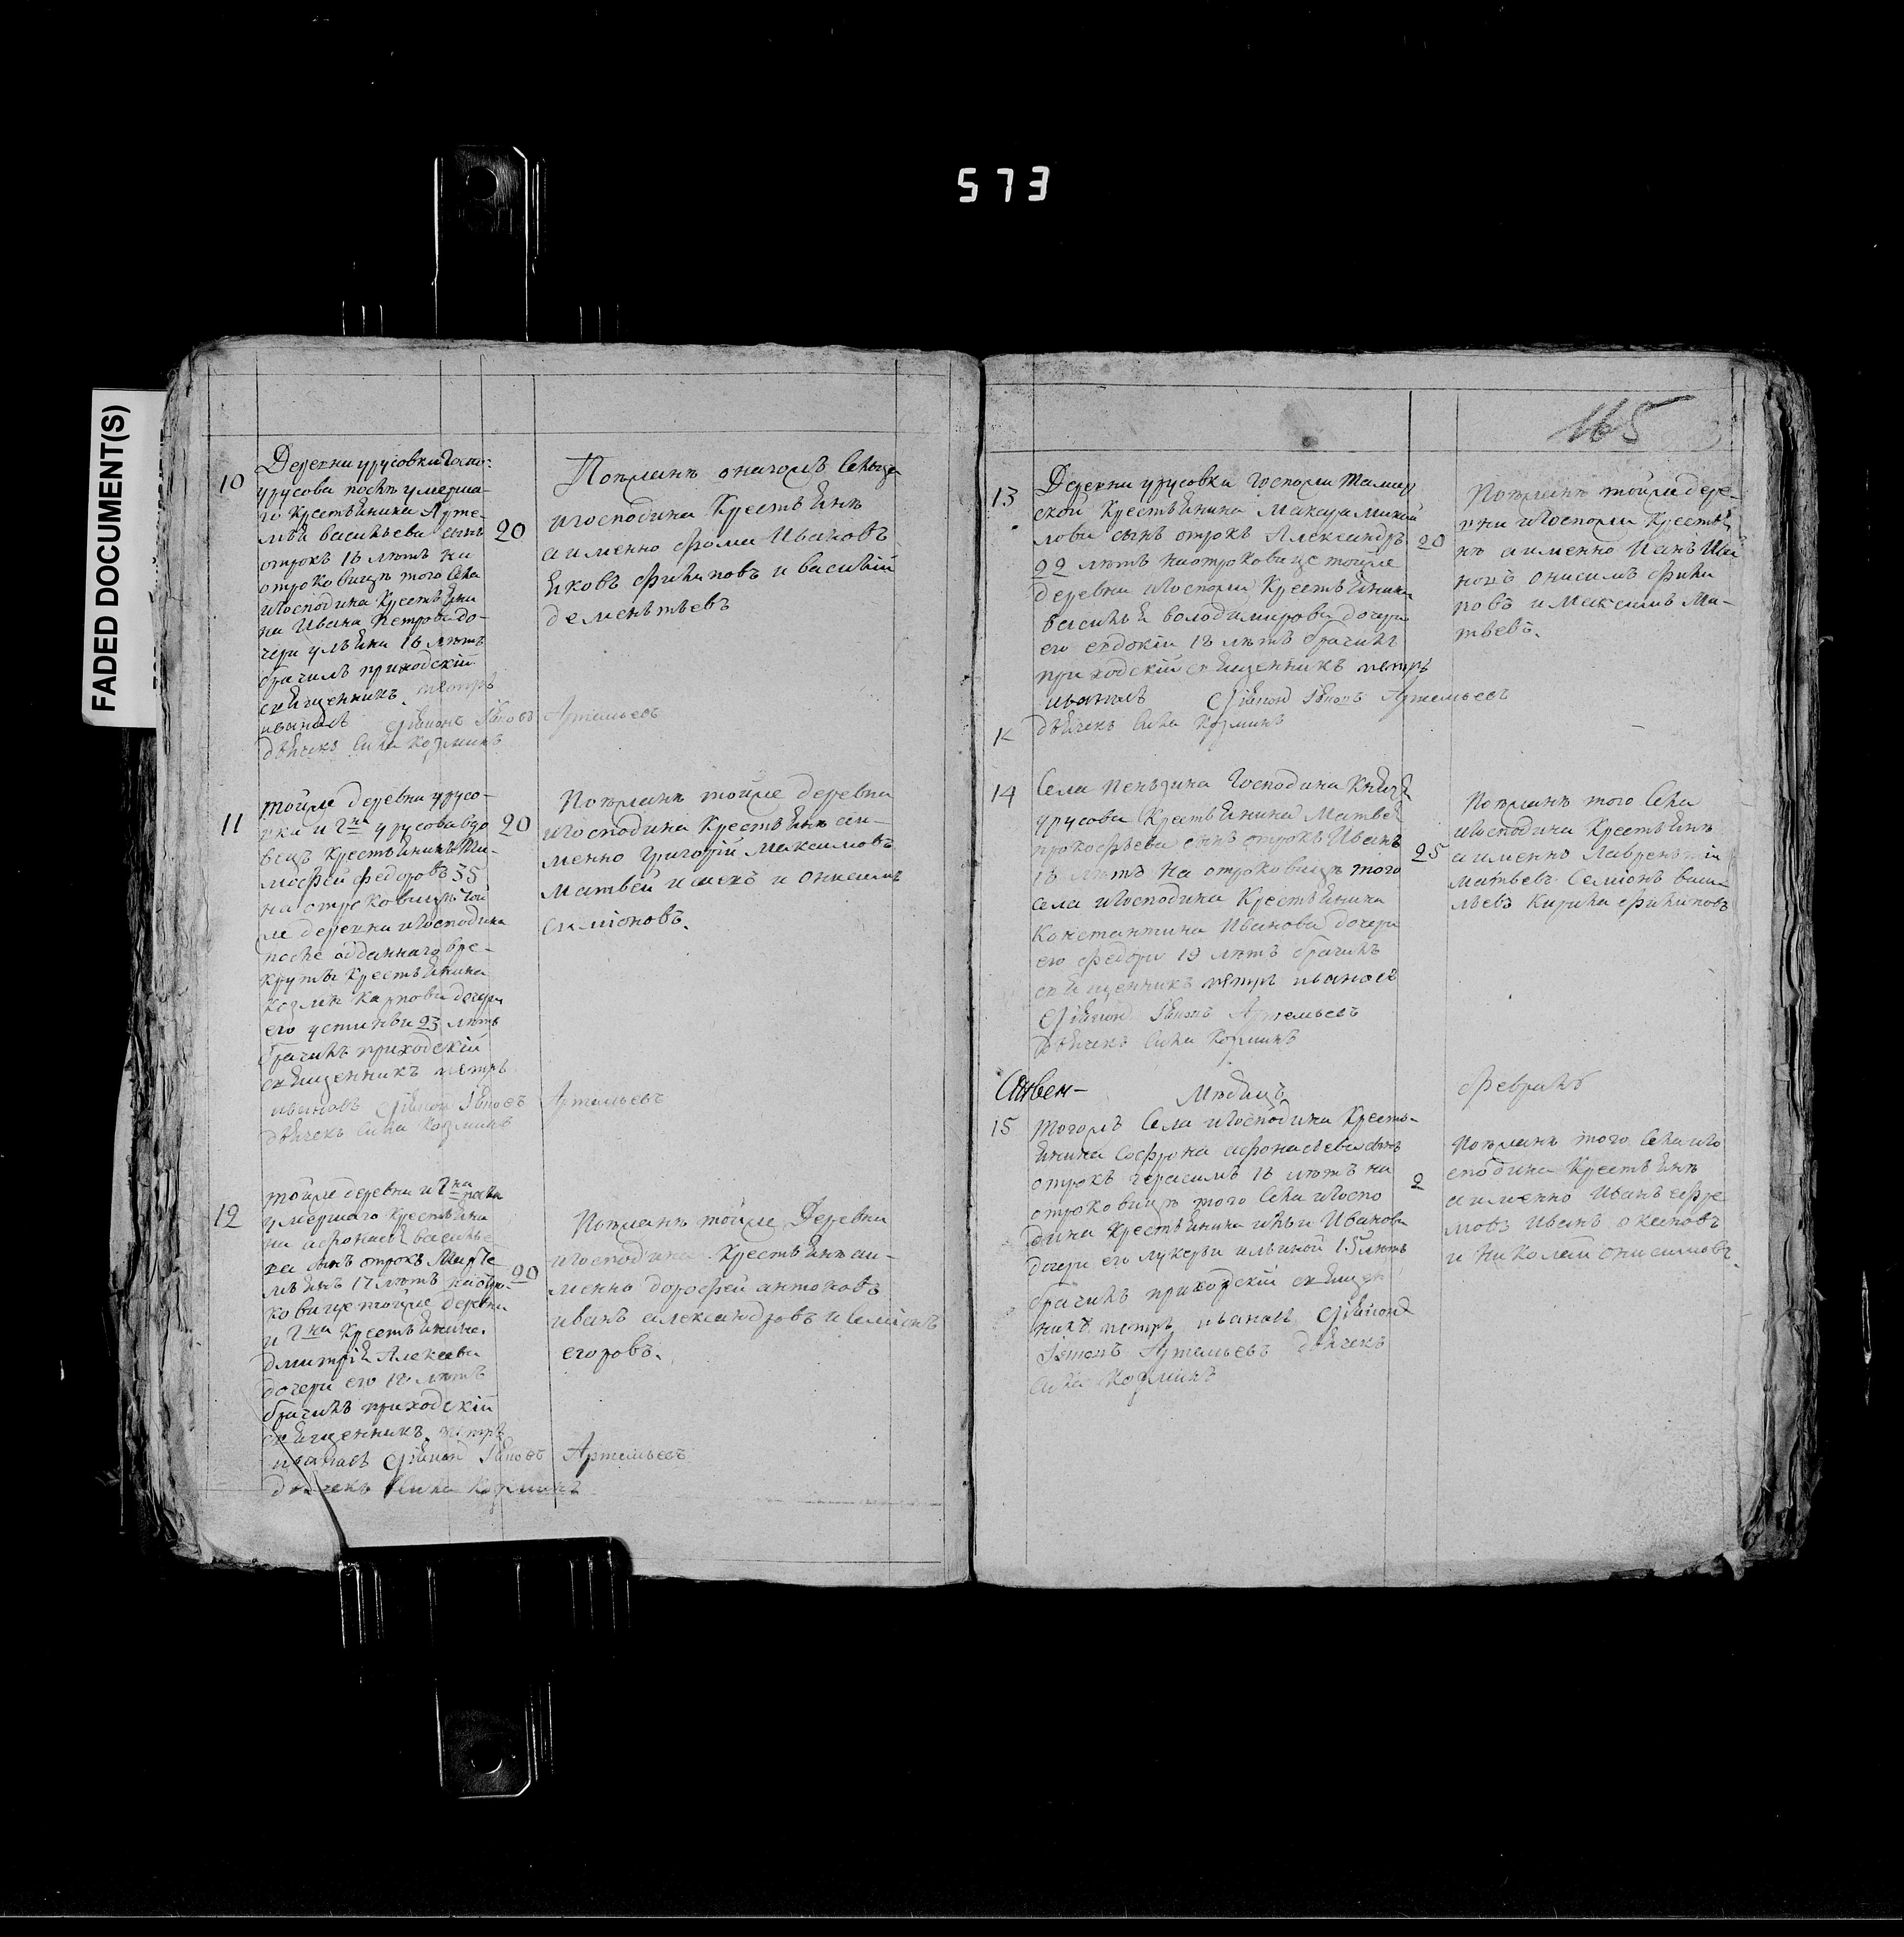 573
FADED DOCUMENT(S)
10
Деревни урусовки Госпо:
урусова после умерша-
го крестьянина Арте-
мья васильева сынъ
отрокъ 18 летъ на
отроковице того села
игосподина крестьяни
на Ивана Петрова до-
чери ульяни 16 летъ
брачилъ приходскій
священникъ петръ
ивановъ Діяконъ Іяковъ Артемьевъ
дьячекъ Сила Козминъ
20
Поезжане оногожъ сельца
игосподина крестьяне
аименно фома Ивановъ
яковъ филиповъ и василій
дементьевъ
11
тойже деревни урусо-
вки и гна урусова вдо
вецъ крестьянинъ Ти-
мофей федоровъ 35
на отроковице той
же деревни игосподина
после отданнаго вре-
круты крестьянина
козми карпова дочери
его устиньи 23 летъ
брачилъ приходскій
священникъ петръ
ивановъ Діяконъ Іяковъ Артемьевъ
дьячекъ Сила Козминъ
20
Поезжане тойже деревни
игосподина крестьяне аи-
менно Григорій Максимовъ
Матвей и онисимъ
семіоновъ.
12
тойже деревни и гна после
умершаго крестьяни
на афонасья василье
ва сынъ отрокъ
17 летъ на отро-
ковице тойже деревни
и гна крестьянина
дмитрія Алексеева
дочери его 18 летъ
брачилъ приходскій
священникъ петръ
ивановъ Діяконъ Іяковъ Артемьевъ
дьячекъ Сила Козминъ
20
Поезжане тойже Деревни
игосподина крестьяне аи-
менно дорофей антоновъ
иванъ александровъ и семіонъ
егоровъ.
165
13
Деревни урусовки Госпожи
ской крестьянина Макара
лова сынъ отрокъ Александръ
22 летъ наотроковице тойже
деревни игоспожи крестьянина
василья володимирова дочери
его евдокіи 18 летъ брачилъ
приходскій священникъ петръ
ивановъ Діяконъ Іяковъ Артемьевъ
дьячекъ Сила Козминъ
20
Поезжане тойже дере-
вни игоспожи крестья
не аименно
онисимъ фили
повъ и Максимъ Ма-
твевъ.
14
Села Пензина Господина Князя
урусова крестьянина Матвея
прокофьева сынъ отрокъ Иванъ
18 летъ на отроковице того
села игосподина крестьянина
Константина Иванова дочери
его федоры 19 летъ брачилъ
священникъ петръ ивановъ
Діяконъ Іяковъ Артемьевъ
дьячекъ Сила Козминъ
25
Поезжане того села
игосподина крестьяне
аименно Лаврентій
матвевъ Семіонъ васи-
льевъ Кирила филиповъ
Месяцъ февраль
15
тогожъ Села игосподина кресть-
янина Софрона афонасьева сынъ
отрокъ герасимъ 18 летъ на
отроковице того села игоспо
дина крестьянина ильи Иванова
дочери его лукерьи ильиной 15 летъ
брачилъ приходскій священ
никъ петръ ивановъ Діяконъ
Іяковъ Артемьевъ дьячекъ
Сила Козминъ
2
Поезжане того села иго
сподина крестьяне
аименно Иванъ ефре
мовъ Иванъ
и Николай онисимовъ.